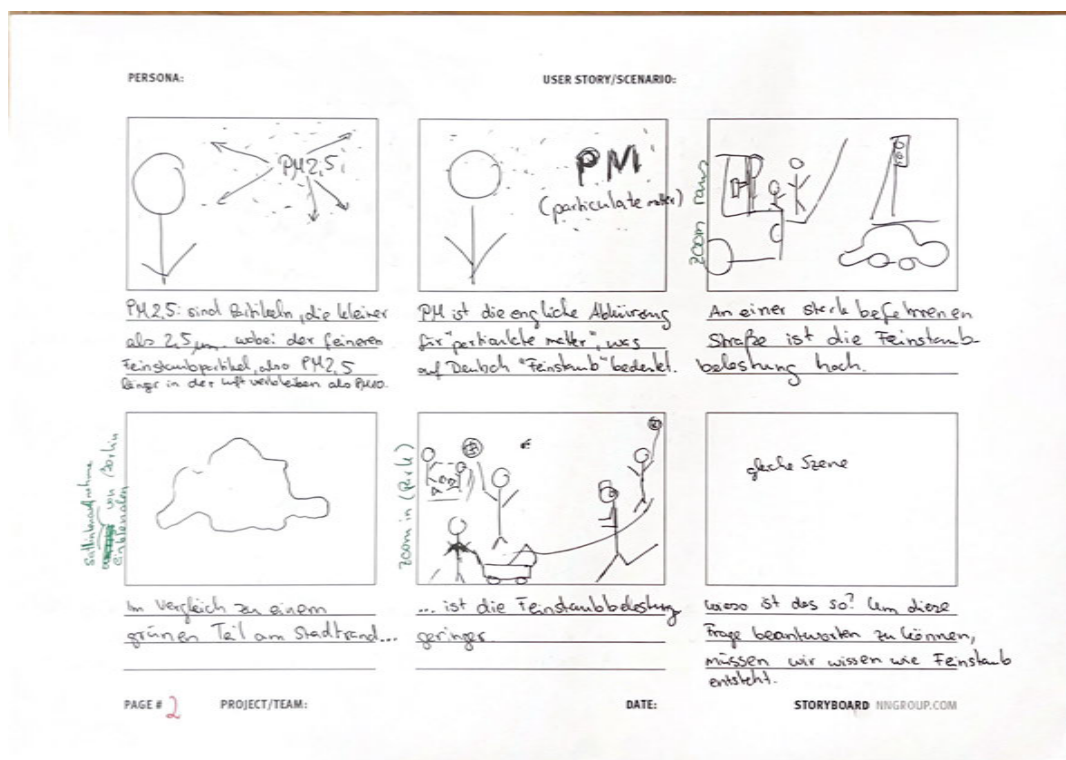 PERSONA:
USER STORY/SCENARIO:
PM2,5
PM2,5: sind Partikeln, die kleiner
als 2,5 µm. wobei der feineren
Feinstaubpartikel, also PM2,5
länger in der Luft verbleiben als PM10.
PM
(particulate matter)
PM ist die engliche Abkürzung
für "particulate matter", was
auf Deutsch "Feinstaub" bedeutet.
zoom raus
An einer stark befahrenen
Straße ist die Feinstaub-
belastung hoch.
Satellitenaufnahme
von Berlin
einblenden
Im Vergleich zu einem
grünen Teil am Stadtrand...
zoom in (Park)
... ist die Feinstaubbelastung
geringer.
gleiche Szene
Wieso ist das so? Um diese
Frage beantworten zu können,
müssen wir wissen wie Feinstaub
entsteht.
PAGE # 2
PROJECT/TEAM:
DATE:
STORYBOARD NNGROUP.COM